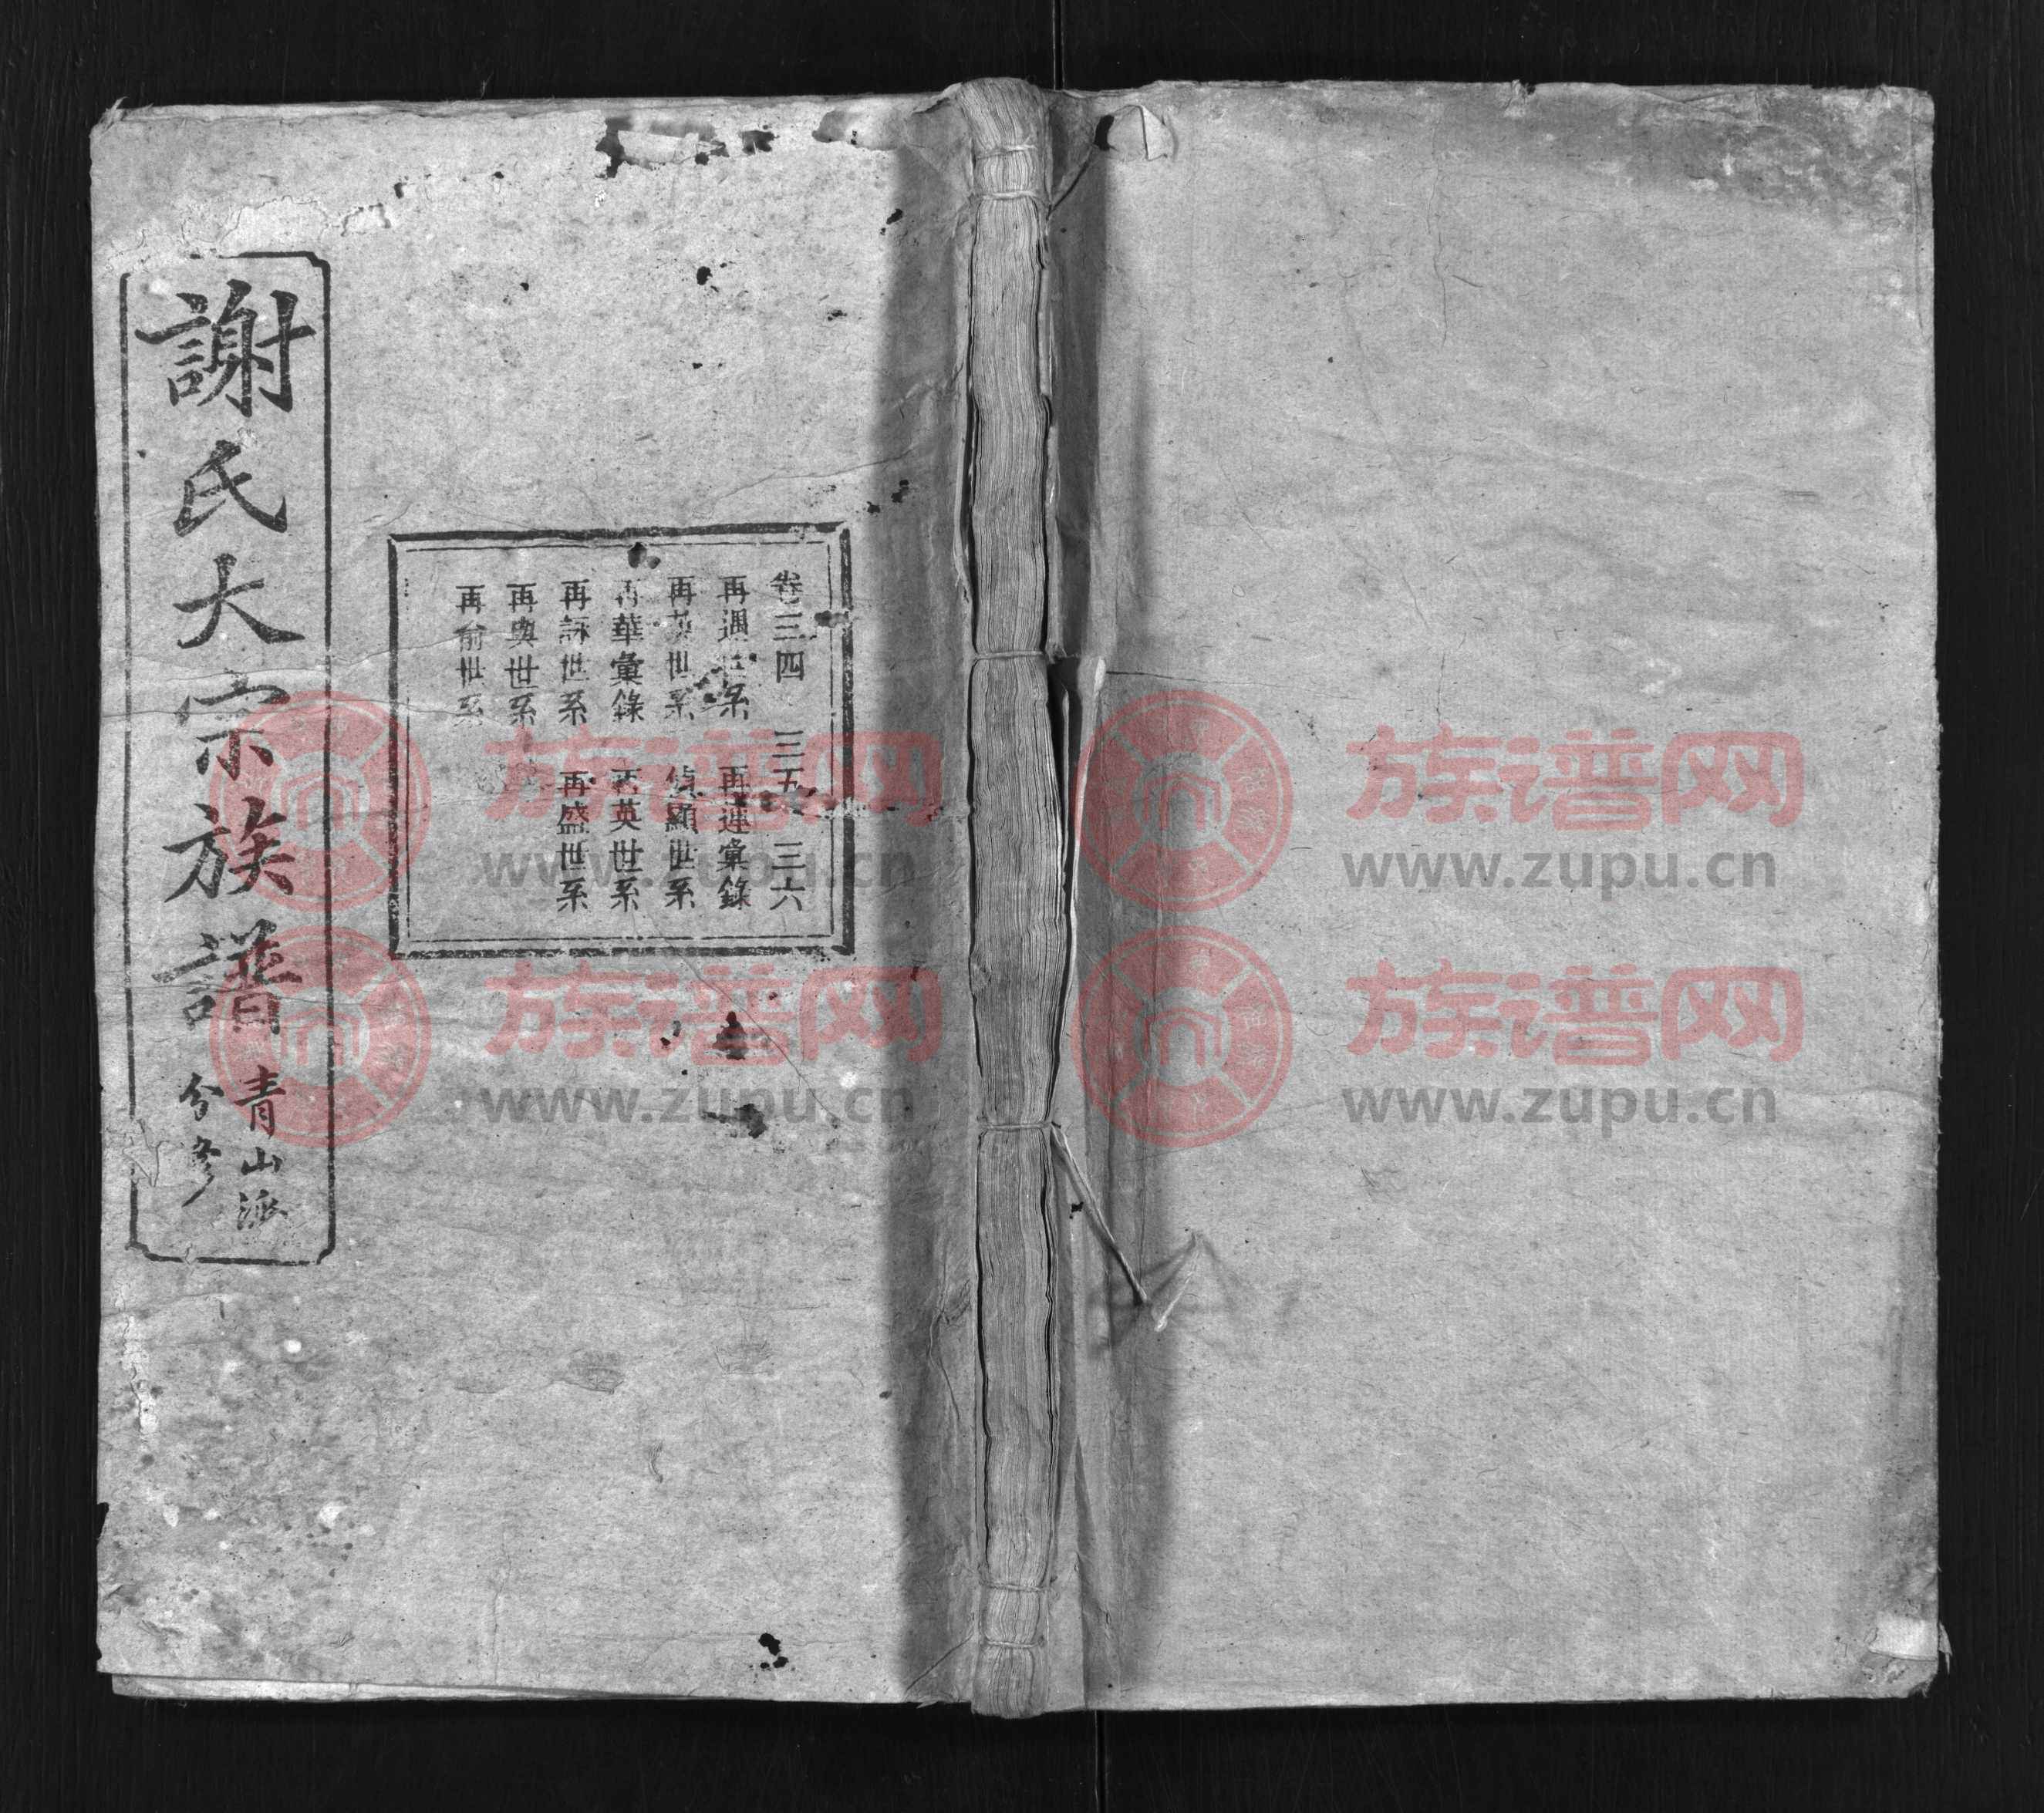 謝氏大宗族譜 青山派
分修
卷三四 三五 三六
再遇世系 再連彙錄
再英世系 顯世系
再華彙錄 再英世系
再詠世系 再盛世系
再輿世系
再俞世系
族谱网
www.zupu.cn
族谱网
www.zupu.cn
族谱网
www.zupu.cn
族谱网
www.zupu.cn